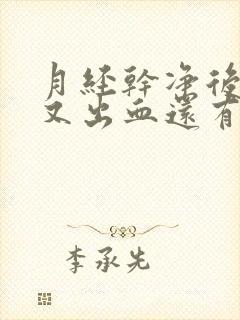 月經幹淨後
又出血還有
李承先